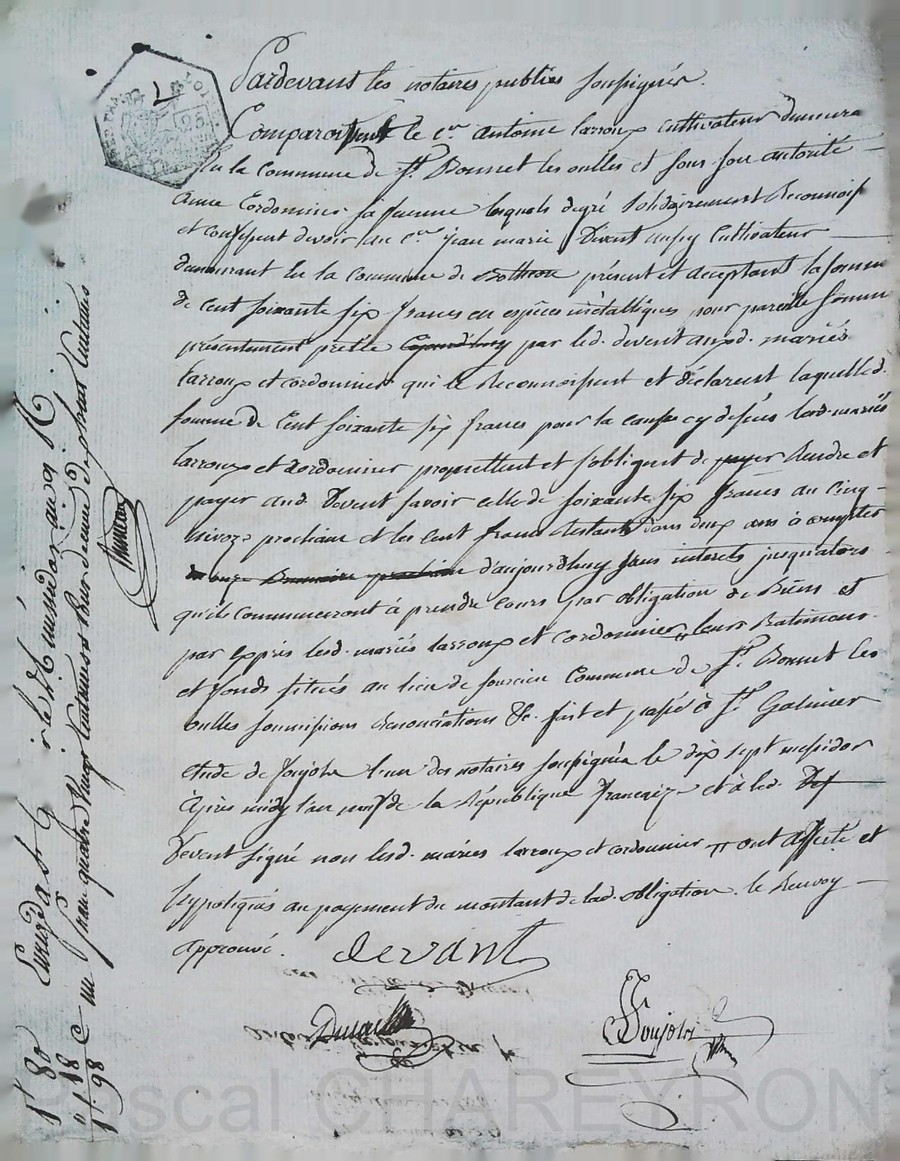 Pardevant les notaires publics soussignés
Comparoissent le c.en antoine Larroux cultivateur demeura
en la Commune de S.t Bonnet les oulles et sous son autorité
anne Cordonnier sa femme lesquels degré solidairement Reconnoiss
et confessent devoir au c.en jean marie Devent aussy Cultivateur
demeurant En la Commune de présent et acceptant la somme
de cent soixante six francs en espèces métalliques pour pareille somme
présentement prettée cejourd'huy par led. devent auxd. mariés
Larroux et cordonnier qui le Reconnoissent et déclarent laquelled.
somme de Cent soixante six francs pour la cause cy dessus lesd. mariés
Larroux et Cordonnier promettent et s'obligent de payer Rendre et
payer aud. Devent savoir celle de soixante six francs au cinq
nivoze prochain et les cent francs Restants dans deux ans à compter
d'aujourdhuy sans interets jusqu'alors
qu'ils commenceront à prendre cours par obligation de Biens et
par exprès lesd. mariés Larroux et cordonnier leurs Batimens
et fonds situés au lieu de Commune de S.t Bonnet les
oulles soumissions Renonciations &c. fait et passé à S.t Galmier
etude de Soujolin l'un des notaires soussignés le dix sept messidor
Après midy l'an neuf de la République française et à led.
Devent signé non lesd. mariés Larroux et cordonnier ont affecté et
hypotéqués au payement du montant de lad. obligation. le Renvoy
approuvé.
devant
Soujolin
1f 80
" 18
1f. 98
Pascal CHAREYRON